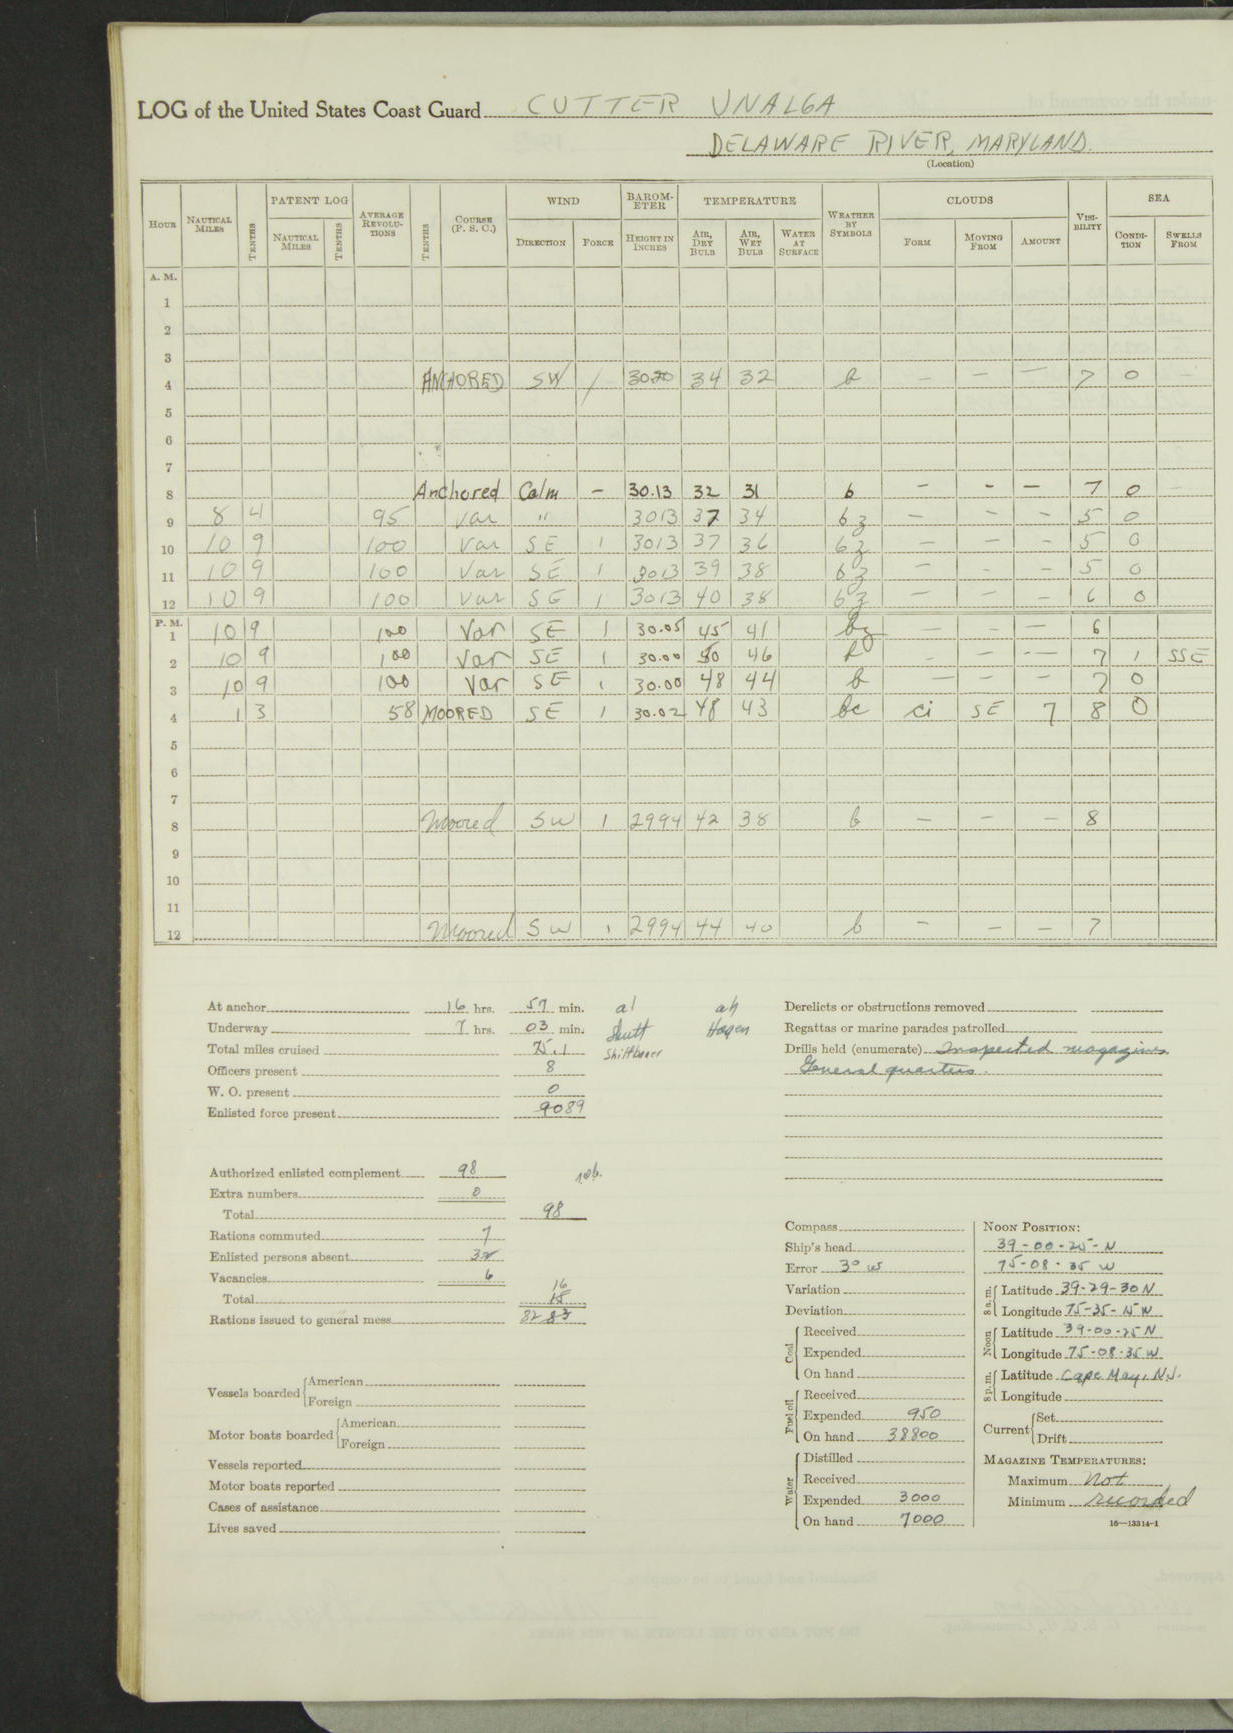 LOG of the United States Coast Guard CUTTER UNALGA
DELAWARE RIVER, MARYLAND.
(Location)
HOUR NAUTICAL MILES TENTHS PATENT LOG NAUTICAL MILES TENTHS AVERAGE REVOLUTIONS TENTHS COURSE (P. S. C.) WIND DIRECTION FORCE BAROMETER HEIGHT IN INCHES TEMPERATURE AIR, DRY BULB AIR, WET BULB WATER AT SURFACE WEATHER BY SYMBOLS CLOUDS FORM MOVING FROM AMOUNT VISIBILITY SEA CONDITION SWELLS FROM
A. M.
1
2
3
4 ANCHORED SW / 3020 34 32 b — — — 7 0 -
5
6
7
8 Anchored Calm – 30.13 32 31 b – – – 7 0 -
9 8 4 95 var " 3013 37 34 bz — – – 5 0
10 10 9 100 var SE 1 3013 37 36 bz — – – 5 0
11 10 9 100 Var SE 1 3013 39 38 bz – – – 5 0
12 10 9 100 var SE 1 3013 40 38 bz — – – 6 0
P. M.
1 10 9 100 Var SE 1 30.05 45 41 bz — — — 6
2 10 9 100 Var SE 1 30.00 50 46 b – — – — 7 1 SSE
3 10 9 100 Var SE 1 30.00 48 44 b — — – 7 0
4 1 3 58 MOORED SE 1 30.02 48 43 bc ci SE 7 8 0
5
6
7
8 Moored SW 1 2994 42 38 b — – — 8
9
10
11
12 Moored SW 1 2994 44 40 b – – — 7
At anchor 16 hrs. 57 min. al ah
Underway 7 hrs. 03 min. Shutt Hagen
Total miles cruised 75.1
Officers present 8
W. O. present 0
Enlisted force present 9089
Authorized enlisted complement 98
Extra numbers 0
Total 98
Rations commuted 7
Enlisted persons absent 3
Vacancies 6
Total 16 15
Rations issued to general mess 82 83
Vessels boarded American
Foreign
Motor boats boarded American
Foreign
Vessels reported
Motor boats reported
Cases of assistance
Lives saved
Derelicts or obstructions removed
Regattas or marine parades patrolled
Drills held (enumerate) Inspected magazines
General quarters.
Compass
Ship's head
Error 3° W
Variation
Deviation
Coal Received
Expended
On hand
Fuel oil Received
Expended 950
On hand 38800
Water Distilled
Received
Expended 3000
On hand 7000
NOON POSITION:
39-00-25-N
75-08-35 W
8 a. m. Latitude 39-29-30 N
Longitude 75-35-15 W
Noon Latitude 39-00-25 N
Longitude 75-08-35 W
8 p. m. Latitude Cape May, N.J.
Longitude
Current Set
Drift
MAGAZINE TEMPERATURES:
Maximum Not
Minimum recorded
16—13314-1